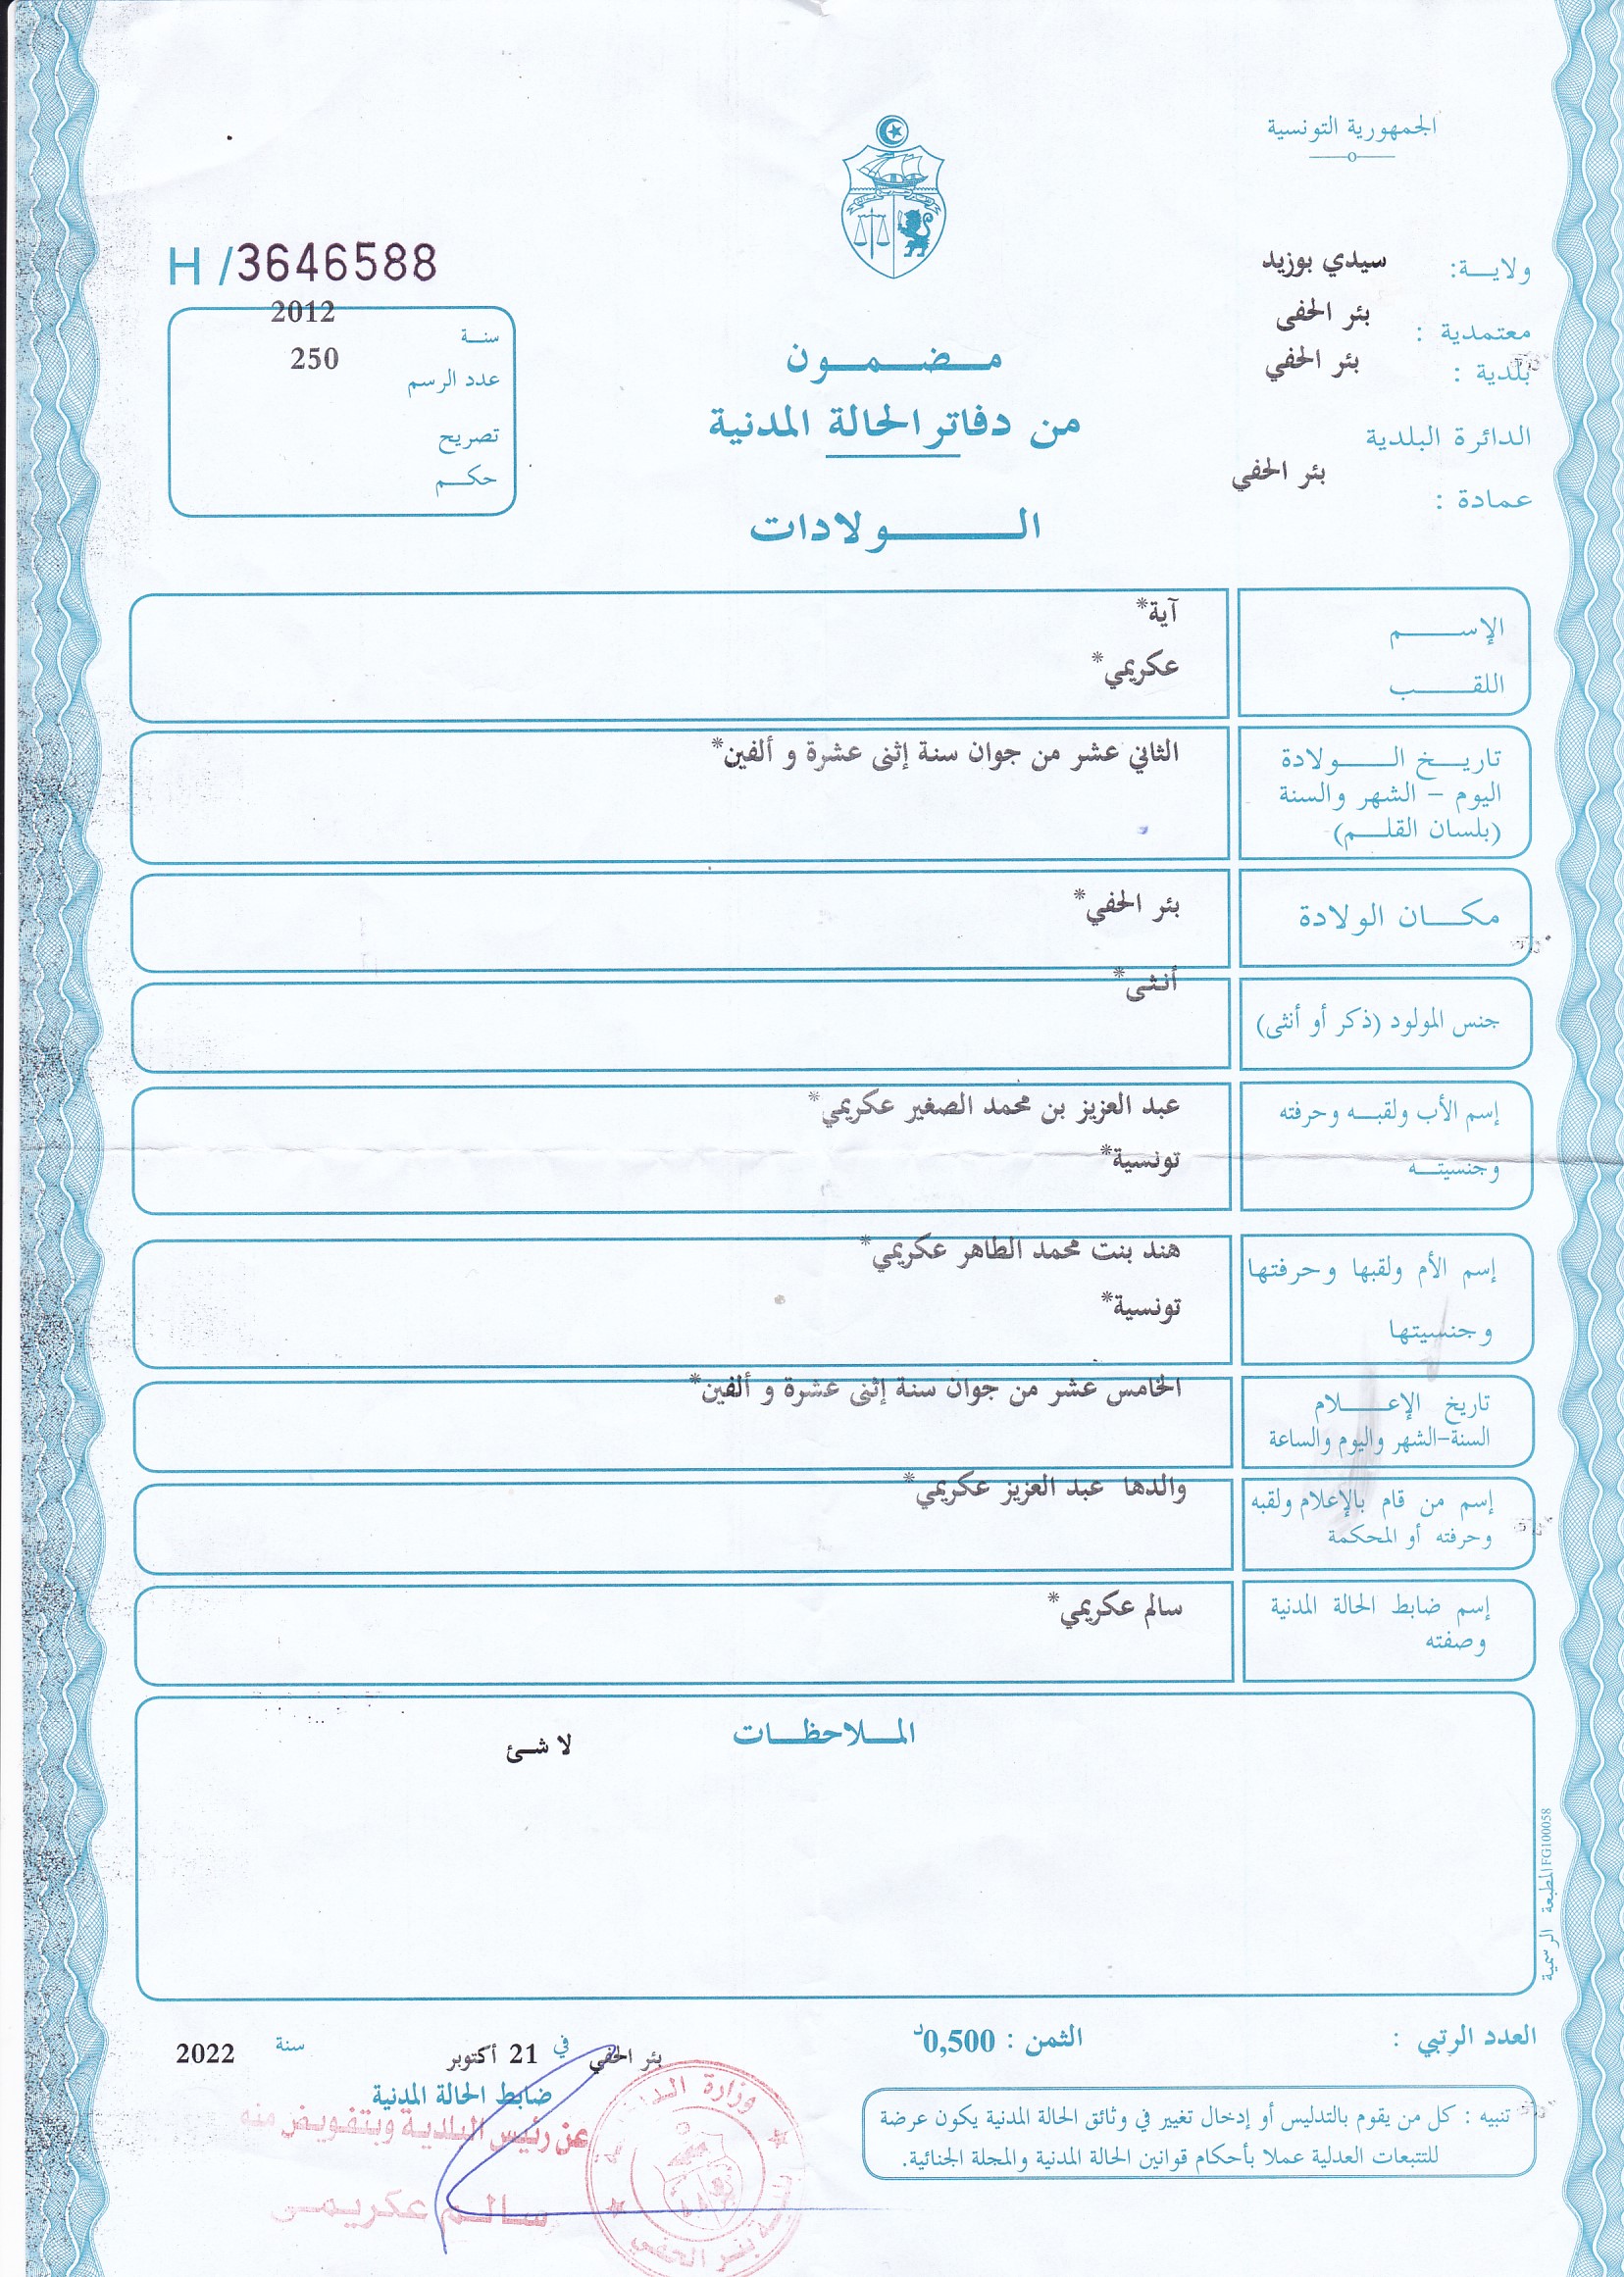 الجمهورية التونسية
ولاية: سيدي بوزيد
معتمدية : بئر الحفى
بلدية : بئر الحفي
الدائرة البلدية
عمادة : بئر الحفي
H /3646588
سنة 2012
عدد الرسم 250
تصريح
حكم
مضمون
من دفاتر الحالة المدنية
الولادات
الإسم آية*
اللقب عكريمي*
تاريخ الولادة الثاني عشر من جوان سنة إثنى عشرة و ألفين*
اليوم - الشهر والسنة
(بلسان القلم)
مكان الولادة بئر الحفي*
جنس المولود (ذكر أو أنثى) أنثى*
إسم الأب ولقبه وحرفته عبد العزيز بن محمد الصغير عكريمي*
وجنسيته تونسية*
إسم الأم ولقبها وحرفتها هند بنت محمد الطاهر عكريمي*
وجنسيتها تونسية*
تاريخ الإعلام الخامس عشر من جوان سنة إثنى عشرة و ألفين*
السنة-الشهر واليوم والساعة
إسم من قام بالإعلام ولقبه والدها عبد العزيز عكريمي*
وحرفته أو المحكمة
إسم ضابط الحالة المدنية سالم عكريمي*
وصفته
الملاحظات
لا شئ
المطبعة الرسمية FG100058
العدد الرتبي :
الثمن : 0,500د
بئر الحفي في 21 أكتوبر سنة 2022
ضابط الحالة المدنية
عن رئيس البلدية وبتفويض منه
سالم عكريمي
وزارة
بئر الحفي
تنبيه : كل من يقوم بالتدليس أو إدخال تغيير في وثائق الحالة المدنية يكون عرضة
للتتبعات العدلية عملا بأحكام قوانين الحالة المدنية والمجلة الجنائية.